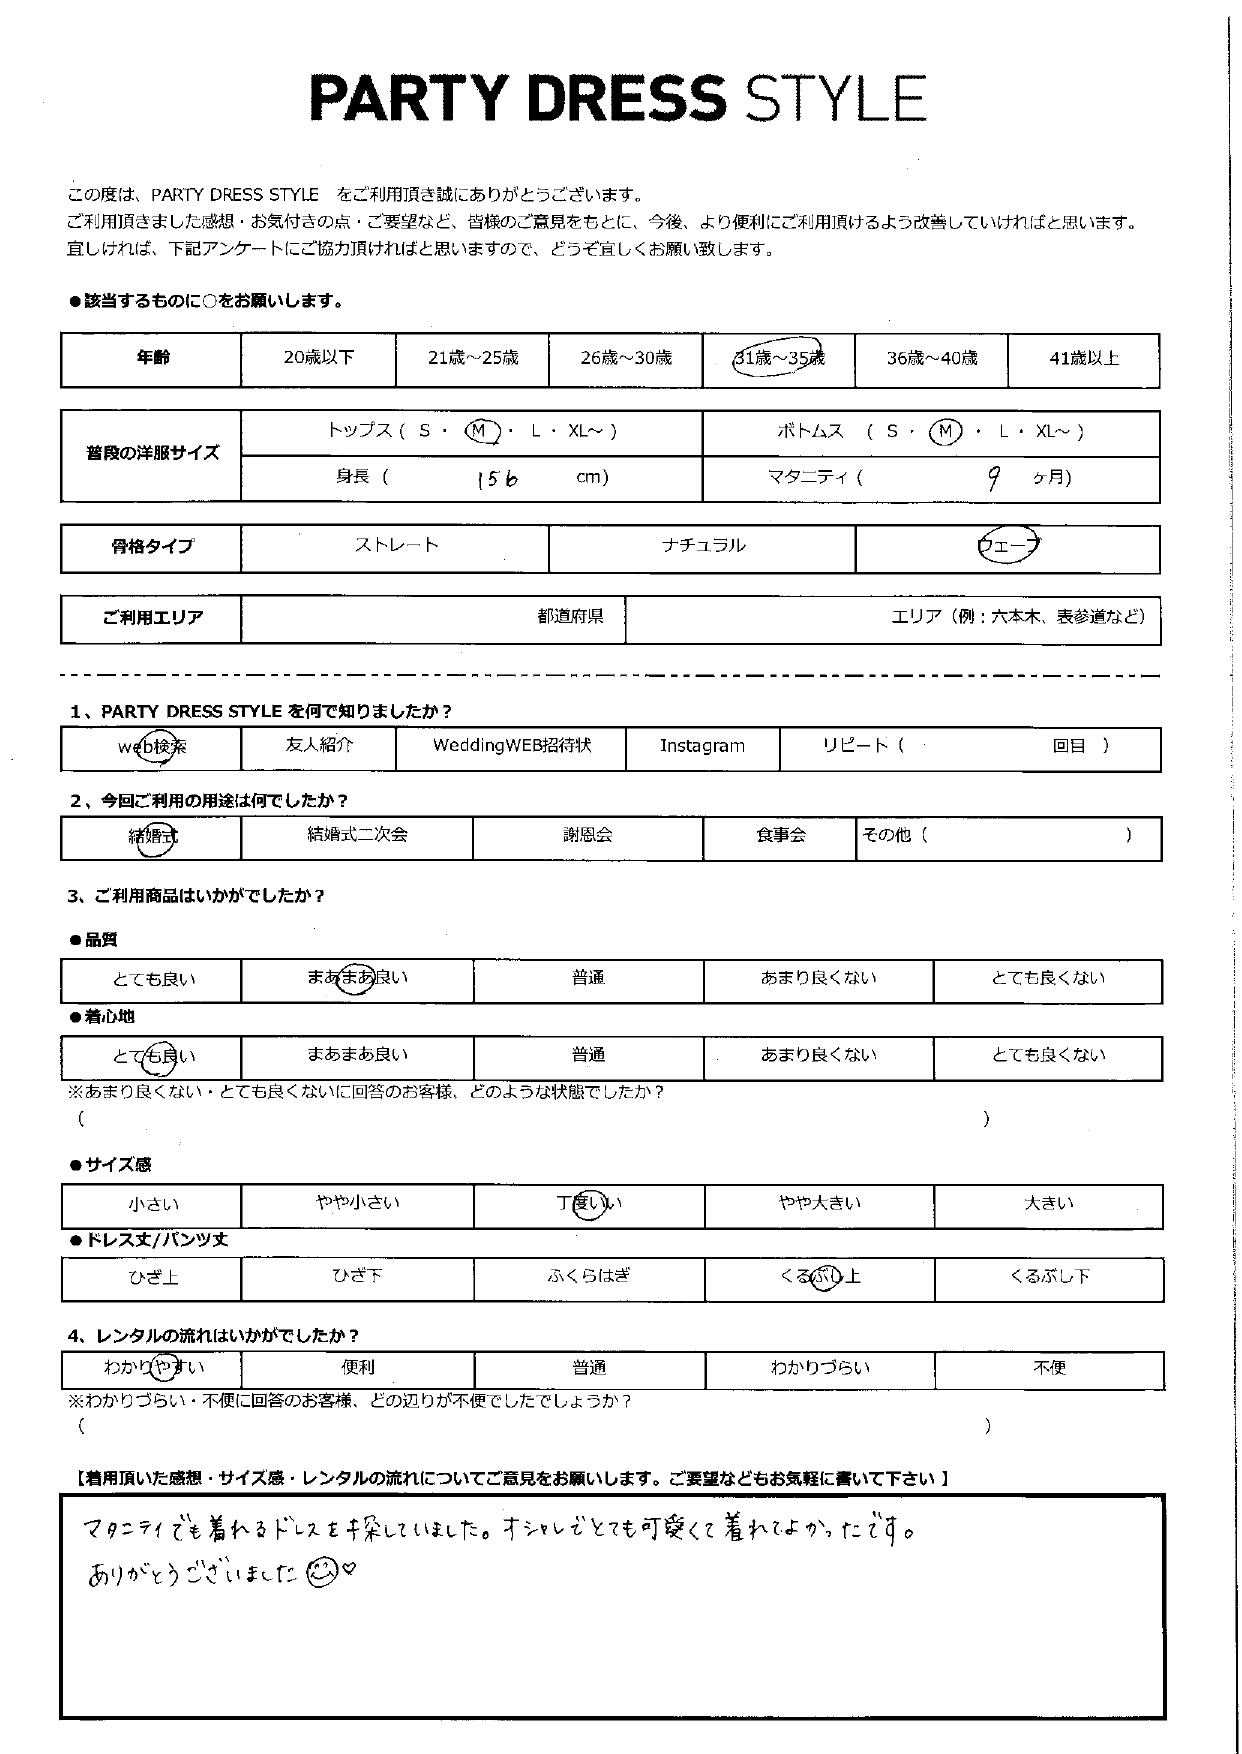 PARTY DRESS STYLE
この度は、PARTY DRESS STYLE　をご利用頂き誠にありがとうございます。
ご利用頂きました感想・お気付きの点・ご要望など、皆様のご意見をもとに、今後、より便利にご利用頂けるよう改善していければと思います。
宜しければ、下記アンケートにご協力頂ければと思いますので、どうぞ宜しくお願い致します。
●該当するものに○をお願いします。
年齢 20歳以下 21歳～25歳 26歳～30歳 31歳～35歳 36歳～40歳 41歳以上
普段の洋服サイズ トップス ( S ・ M ・ L ・ XL～ ) ボトムス ( S ・ M ・ L ・ XL～ )
身長 ( 156 cm) マタニティ ( 9 ヶ月)
骨格タイプ ストレート ナチュラル ウェーブ
ご利用エリア 都道府県 エリア（例：六本木、表参道など）
1、PARTY DRESS STYLE を何で知りましたか？
web検索 友人紹介 WeddingWEB招待状 Instagram リピート ( 回目 )
2、今回ご利用の用途は何でしたか？
結婚式 結婚式二次会 謝恩会 食事会 その他 ( )
3、ご利用商品はいかがでしたか？
●品質
とても良い まあまあ良い 普通 あまり良くない とても良くない
●着心地
とても良い まあまあ良い 普通 あまり良くない とても良くない
※あまり良くない・とても良くないに回答のお客様、どのような状態でしたか？
( )
●サイズ感
小さい やや小さい 丁度いい やや大きい 大きい
●ドレス丈/パンツ丈
ひざ上 ひざ下 ふくらはぎ くるぶし上 くるぶし下
4、レンタルの流れはいかがでしたか？
わかりやすい 便利 普通 わかりづらい 不便
※わかりづらい・不便に回答のお客様、どの辺りが不便でしたでしょうか？
( )
【着用頂いた感想・サイズ感・レンタルの流れについてご意見をお願いします。ご要望などもお気軽に書いて下さい 】
マタニティでも着れるドレスを探していました。オシャレでとても可愛くて着れてよかったです。
ありがとうございました☺♡